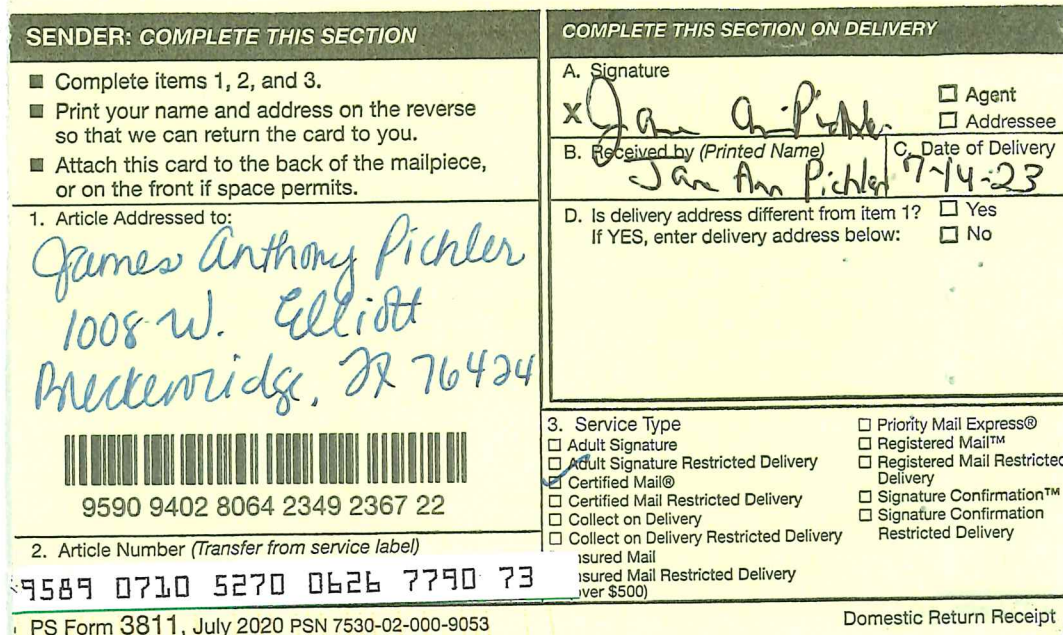 SENDER: COMPLETE THIS SECTION
■ Complete items 1, 2, and 3.
■ Print your name and address on the reverse
so that we can return the card to you.
■ Attach this card to the back of the mailpiece,
or on the front if space permits.
1. Article Addressed to:
James Anthony Pichler
1008 W. Elliott
Breckenridge, TX 76424
9590 9402 8064 2349 2367 22
2. Article Number (Transfer from service label)
9589 0710 5270 0626 7790 73
PS Form 3811, July 2020 PSN 7530-02-000-9053
COMPLETE THIS SECTION ON DELIVERY
A. Signature
X Jane Ann Pichler
☐ Agent
☐ Addressee
B. Received by (Printed Name)
Jane Ann Pichler
C. Date of Delivery
7-14-23
D. Is delivery address different from item 1? ☐ Yes
If YES, enter delivery address below: ☐ No
3. Service Type
☐ Adult Signature
☐ Adult Signature Restricted Delivery
☐ Certified Mail®
☐ Certified Mail Restricted Delivery
☐ Collect on Delivery
☐ Collect on Delivery Restricted Delivery
nsured Mail
nsured Mail Restricted Delivery
over $500)
☐ Priority Mail Express®
☐ Registered Mail™
☐ Registered Mail Restricted
Delivery
☐ Signature Confirmation™
☐ Signature Confirmation
Restricted Delivery
Domestic Return Receipt